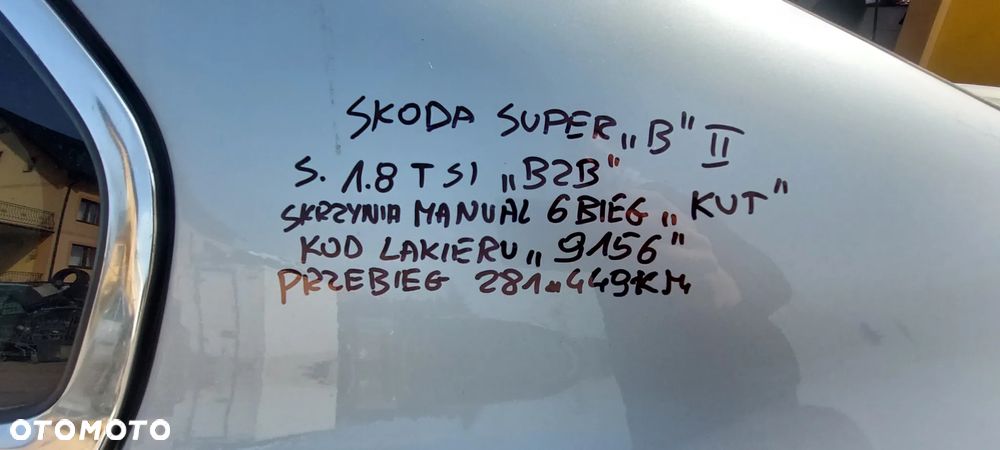 SKODA SUPER „B" II
S. 1.8 TSI „BZB"
SKRZYNIA MANUAL 6BIEG „KUT"
KOD LAKIERU „9156"
PRZEBIEG 281.449KM
OTOMOTO